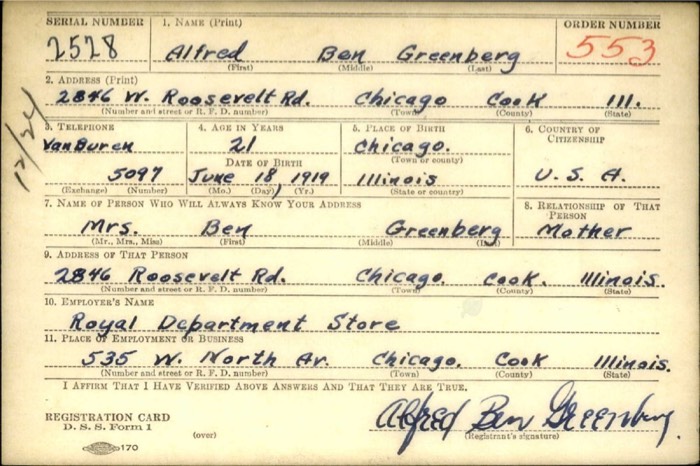 SERIAL NUMBER 1. NAME (Print) ORDER NUMBER
2528 Alfred Ben Greenberg 553
(First) (Middle) (Last)
2. ADDRESS (Print)
2846 W. Roosevelt Rd. Chicago Cook Ill.
(Number and street or R. F. D. number) (Town) (County) (State)
12/24
3. TELEPHONE 4. AGE IN YEARS 5. PLACE OF BIRTH 6. COUNTRY OF CITIZENSHIP
VanBuren 21 Chicago.
DATE OF BIRTH (Town or county)
5097 June 18, 1919 Illinois U. S. A.
(Exchange) (Number) (Mo.) (Day) (Yr.) (State or country)
7. NAME OF PERSON WHO WILL ALWAYS KNOW YOUR ADDRESS 8. RELATIONSHIP OF THAT PERSON
Mrs. Ben Greenberg Mother
(Mr., Mrs., Miss) (First) (Middle) (Last)
9. ADDRESS OF THAT PERSON
2846 Roosevelt Rd. Chicago. Cook. Illinois.
(Number and street or R. F. D. number) (Town) (County) (State)
10. EMPLOYER'S NAME
Royal Department Store
11. PLACE OF EMPLOYMENT OR BUSINESS
535 W. North Av. Chicago. Cook Illinois.
(Number and street or R. F. D. number) (Town) (County) (State)
I AFFIRM THAT I HAVE VERIFIED ABOVE ANSWERS AND THAT THEY ARE TRUE.
REGISTRATION CARD Alfred Ben Greenberg.
D. S. S. Form 1 (over) (Registrant's signature)
170